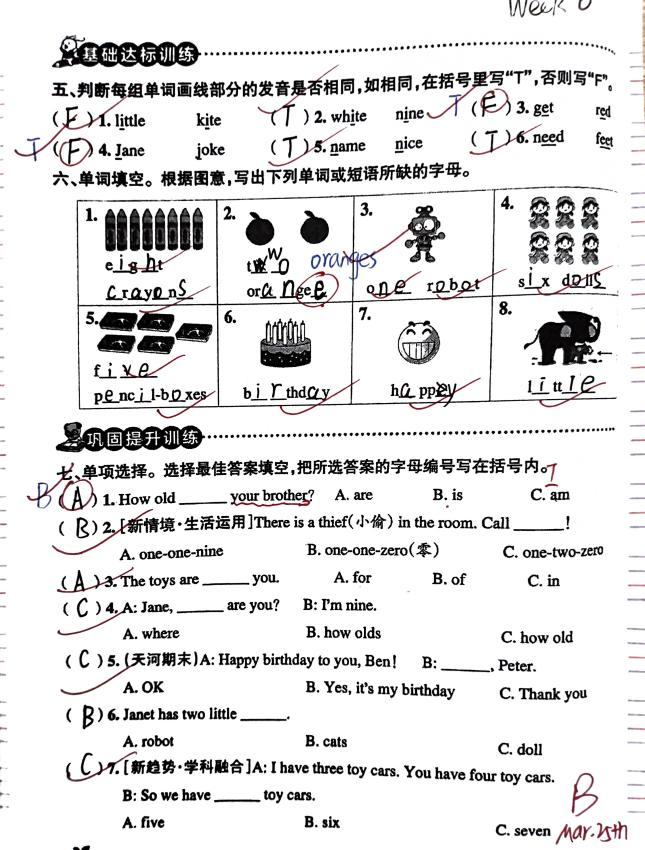 Week 6
基础达标训练
五、判断每组单词画线部分的发音是否相同,如相同,在括号里写“T”,否则写“F”。
( F ) 1. little kite ( T ) 2. white nine T ( F ) 3. get red
T ( F ) 4. Jane joke ( T ) 5. name nice ( T ) 6. need feet
六、单词填空。根据图意,写出下列单词或短语所缺的字母。
1. 2. 3. 4.
eight two oranges
crayons orangee one robot six dolls
5. 6. 7. 8.
five
pencil-boxes birthday happy little
巩固提升训练
七、单项选择。选择最佳答案填空,把所选答案的字母编号写在括号内。
B ( A ) 1. How old ______ your brother? A. are B. is C. am
( B ) 2. [新情境·生活运用]There is a thief(小偷) in the room. Call ______!
A. one-one-nine B. one-one-zero(零) C. one-two-zero
( A ) 3. The toys are ______ you. A. for B. of C. in
( C ) 4. A: Jane, ______ are you? B: I'm nine.
A. where B. how olds C. how old
( C ) 5. (天河期末)A: Happy birthday to you, Ben! B: ______, Peter.
A. OK B. Yes, it's my birthday C. Thank you
( B ) 6. Janet has two little ______.
A. robot B. cats C. doll
( C ) 7. [新趋势·学科融合]A: I have three toy cars. You have four toy cars.
B: So we have ______ toy cars.
B
A. five B. six C. seven Mar.25th